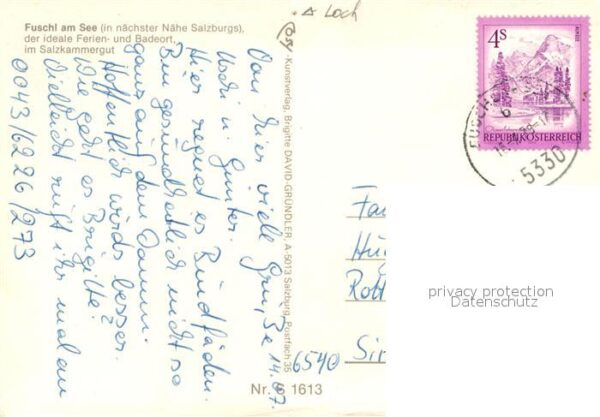 Fuschl am See (in nächster Nähe Salzburgs),
der ideale Ferien- und Badeort,
im Salzkammergut
Loch
Kunstverlag, Brigitte DAVID-GRÜNDLER, A-5013 Salzburg, Postfach 35
Von hier viele Grüße 14.07.
Uschi u. Günter.
Hier regnet es Bindfäden.
Bin gesundheitlich nicht so
ganz auf dem Damm.
Hoffentlich wirds besser.
Wie geht es Brigitte?
Vielleicht ruft ihr mal an
0043/6226/273
4S
REPUBLIK ÖSTERREICH
FUSCHL
5330
Hu
Rott
6540 Sim
privacy protection
Datenschutz
Nr. S 1613